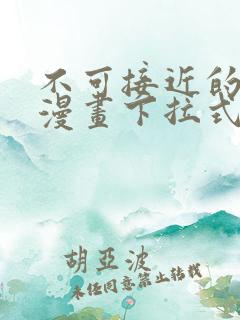 不可接近的
漫畫下拉式
胡亞波
未经同意禁止转载